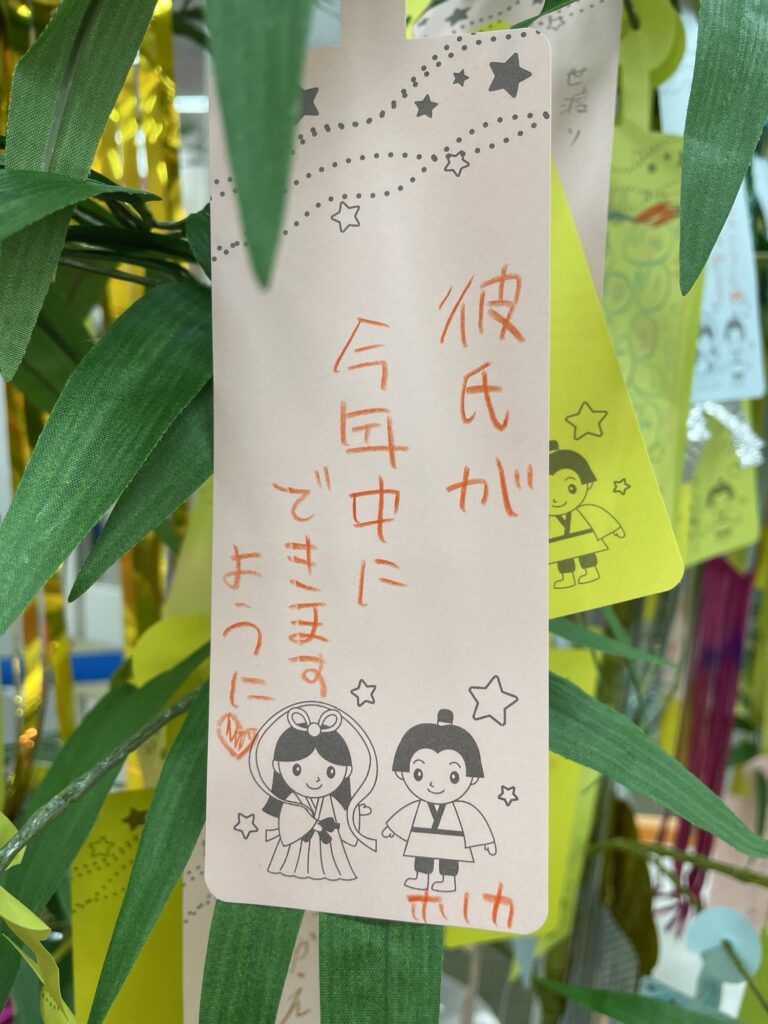 彼氏が
今年中に
できます
ように
ホノカ
せ渡り